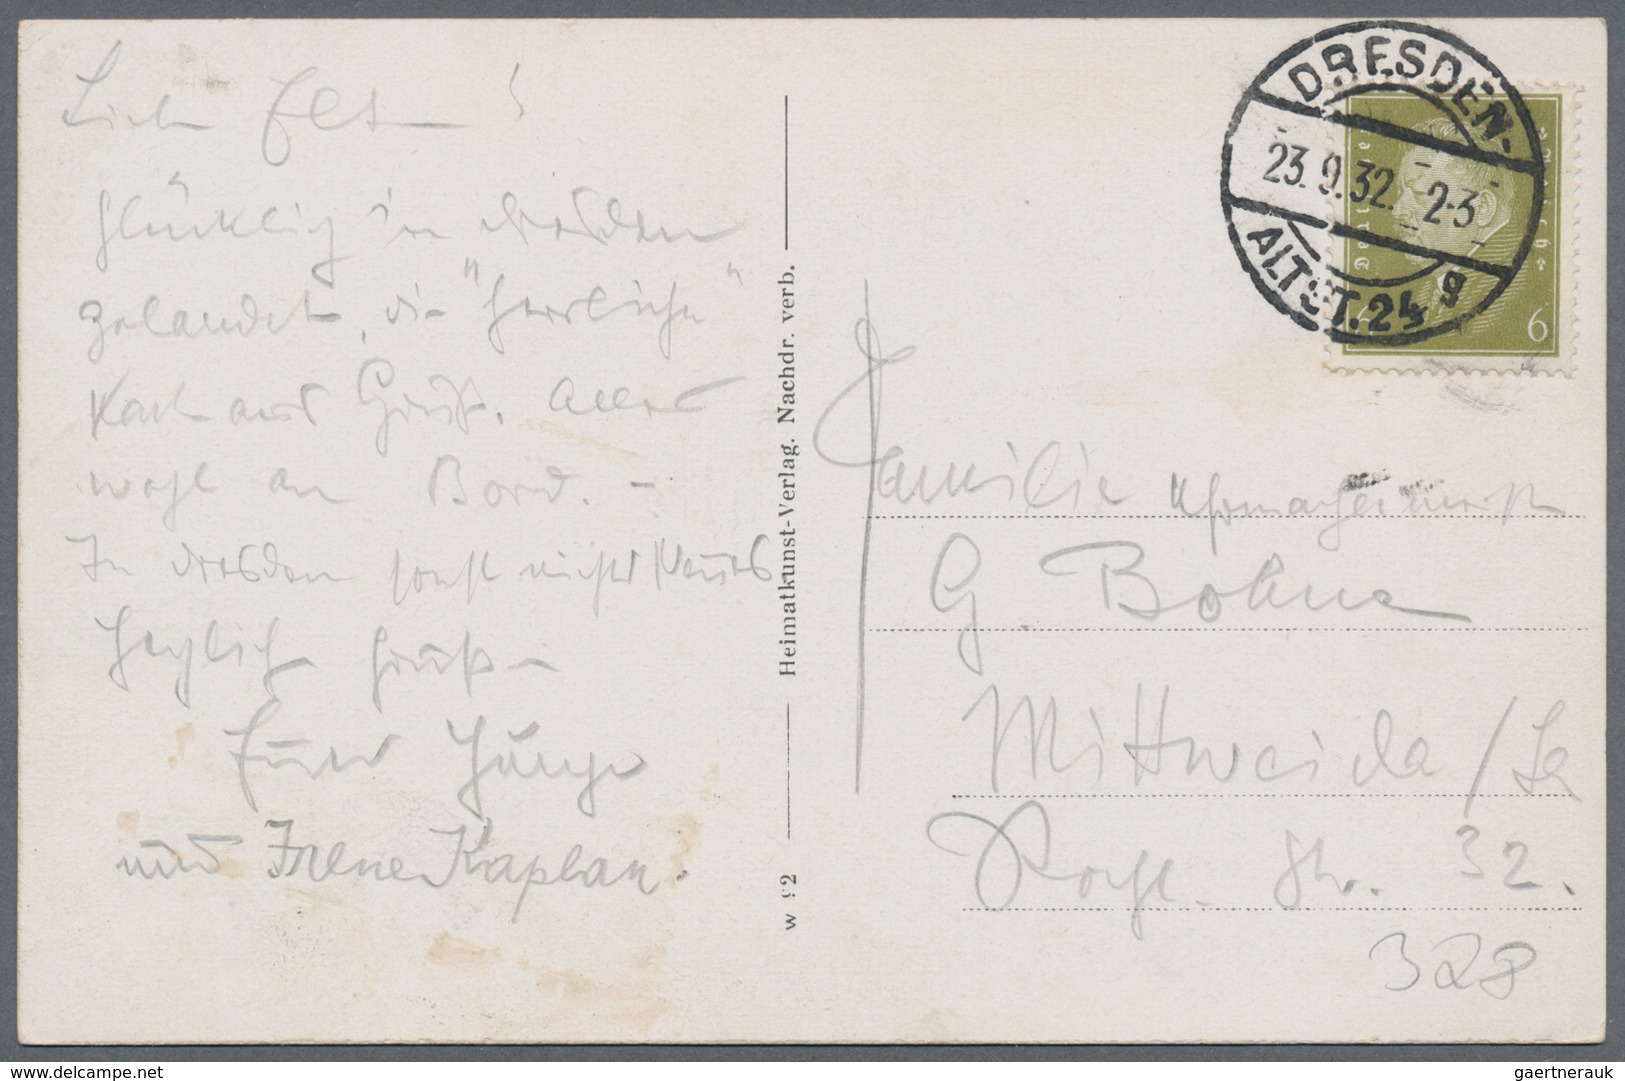 Liebe Elt !
glücklich in Dresden
gelandet, die "herrliche"
Karte aus Gruß. Alles
wohl an Bord. –
In Dresden sonst nichts Neues
Herzlich Grüße
Euer Junge
und Irene Kaplan.
w 92
Heimatkunst-Verlag. Nachdr. verb.
DRESDEN-
23.9.32. 2-3
ALTST. 24 g
Deutsches Reich
6
Familie Uhrmachermstr
G. Bohne
Mittweida / Sa
Rochl. Str. 32.
328
delcampe.net
gaertnerauk